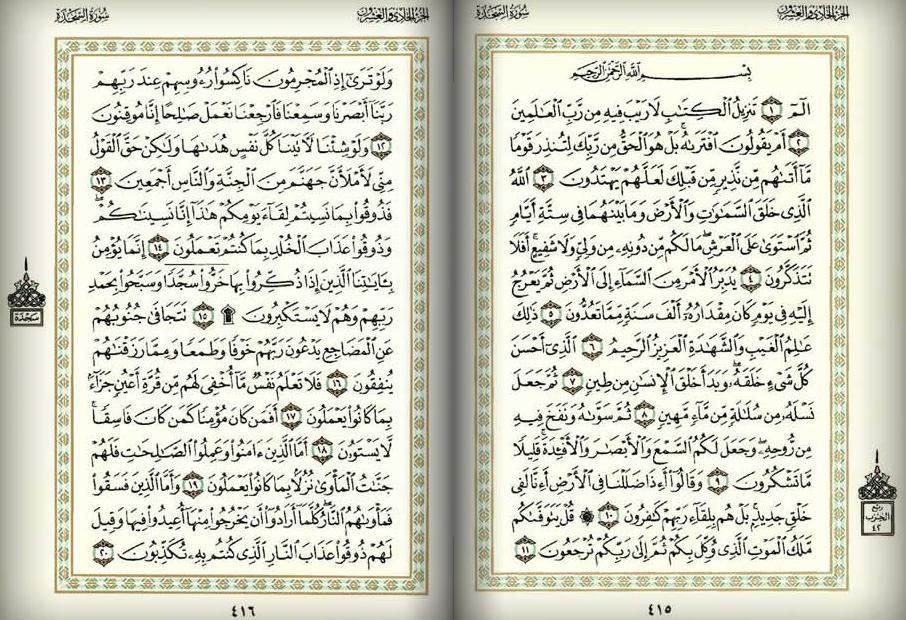 الجزء الحادي والعشرون
سورة السجدة
بسم الله الرحمن الرحيم
الٓمٓ ١ تَنزِيلُ ٱلْكِتَٰبِ لَا رَيْبَ فِيهِ مِن رَّبِّ ٱلْعَٰلَمِينَ
٢ أَمْ يَقُولُونَ ٱفْتَرَىٰهُ ۚ بَلْ هُوَ ٱلْحَقُّ مِن رَّبِّكَ لِتُنذِرَ قَوْمًا
مَّآ أَتَىٰهُم مِّن نَّذِيرٍ مِّن قَبْلِكَ لَعَلَّهُمْ يَهْتَدُونَ ٣ ٱللَّهُ
ٱلَّذِى خَلَقَ ٱلسَّمَٰوَٰتِ وَٱلْأَرْضَ وَمَا بَيْنَهُمَا فِى سِتَّةِ أَيَّامٍ
ثُمَّ ٱسْتَوَىٰ عَلَى ٱلْعَرْشِ ۖ مَا لَكُم مِّن دُونِهِۦ مِن وَلِىٍّ وَلَا شَفِيعٍ ۚ أَفَلَا
تَتَذَكَّرُونَ ٤ يُدَبِّرُ ٱلْأَمْرَ مِنَ ٱلسَّمَآءِ إِلَى ٱلْأَرْضِ ثُمَّ يَعْرُجُ
إِلَيْهِ فِى يَوْمٍ كَانَ مِقْدَارُهُۥٓ أَلْفَ سَنَةٍ مِّمَّا تَعُدُّونَ ٥ ذَٰلِكَ
عَٰلِمُ ٱلْغَيْبِ وَٱلشَّهَٰدَةِ ٱلْعَزِيزُ ٱلرَّحِيمُ ٦ ٱلَّذِىٓ أَحْسَنَ
كُلَّ شَىْءٍ خَلَقَهُۥ ۖ وَبَدَأَ خَلْقَ ٱلْإِنسَٰنِ مِن طِينٍ ٧ ثُمَّ جَعَلَ
نَسْلَهُۥ مِن سُلَٰلَةٍ مِّن مَّآءٍ مَّهِينٍ ٨ ثُمَّ سَوَّىٰهُ وَنَفَخَ فِيهِ
مِن رُّوحِهِۦ ۖ وَجَعَلَ لَكُمُ ٱلسَّمْعَ وَٱلْأَبْصَٰرَ وَٱلْأَفْـِٔدَةَ ۚ قَلِيلًا
مَّا تَشْكُرُونَ ٩ وَقَالُوٓا۟ أَءِذَا ضَلَلْنَا فِى ٱلْأَرْضِ أَءِنَّا لَفِى
خَلْقٍ جَدِيدٍۭ ۚ بَلْ هُم بِلِقَآءِ رَبِّهِمْ كَٰفِرُونَ ١٠ ۞ قُلْ يَتَوَفَّىٰكُم
مَّلَكُ ٱلْمَوْتِ ٱلَّذِى وُكِّلَ بِكُمْ ثُمَّ إِلَىٰ رَبِّكُمْ تُرْجَعُونَ ١١
ربع
الحزب
٤٢
٤١٥
الجزء الحادي والعشرون
سورة السجدة
وَلَوْ تَرَىٰٓ إِذِ ٱلْمُجْرِمُونَ نَاكِسُوا۟ رُءُوسِهِمْ عِندَ رَبِّهِمْ
رَبَّنَآ أَبْصَرْنَا وَسَمِعْنَا فَٱرْجِعْنَا نَعْمَلْ صَٰلِحًا إِنَّا مُوقِنُونَ
١٢ وَلَوْ شِئْنَا لَـَٔاتَيْنَا كُلَّ نَفْسٍ هُدَىٰهَا وَلَٰكِنْ حَقَّ ٱلْقَوْلُ
مِنِّى لَأَمْلَأَنَّ جَهَنَّمَ مِنَ ٱلْجِنَّةِ وَٱلنَّاسِ أَجْمَعِينَ ١٣
فَذُوقُوا۟ بِمَا نَسِيتُمْ لِقَآءَ يَوْمِكُمْ هَٰذَآ إِنَّا نَسِينَٰكُمْ ۖ
وَذُوقُوا۟ عَذَابَ ٱلْخُلْدِ بِمَا كُنتُمْ تَعْمَلُونَ ١٤ إِنَّمَا يُؤْمِنُ
بِـَٔايَٰتِنَا ٱلَّذِينَ إِذَا ذُكِّرُوا۟ بِهَا خَرُّوا۟ سُجَّدًا وَسَبَّحُوا۟ بِحَمْدِ
رَبِّهِمْ وَهُمْ لَا يَسْتَكْبِرُونَ ۩ ١٥ تَتَجَافَىٰ جُنُوبُهُمْ
عَنِ ٱلْمَضَاجِعِ يَدْعُونَ رَبَّهُمْ خَوْفًا وَطَمَعًا وَمِمَّا رَزَقْنَٰهُمْ
يُنفِقُونَ ١٦ فَلَا تَعْلَمُ نَفْسٌ مَّآ أُخْفِىَ لَهُم مِّن قُرَّةِ أَعْيُنٍ جَزَآءًۢ
بِمَا كَانُوا۟ يَعْمَلُونَ ١٧ أَفَمَن كَانَ مُؤْمِنًا كَمَن كَانَ فَاسِقًا ۚ
لَّا يَسْتَوُۥنَ ١٨ أَمَّا ٱلَّذِينَ ءَامَنُوا۟ وَعَمِلُوا۟ ٱلصَّٰلِحَٰتِ فَلَهُمْ
جَنَّٰتُ ٱلْمَأْوَىٰ نُزُلًۢا بِمَا كَانُوا۟ يَعْمَلُونَ ١٩ وَأَمَّا ٱلَّذِينَ فَسَقُوا۟
فَمَأْوَىٰهُمُ ٱلنَّارُ ۖ كُلَّمَآ أَرَادُوٓا۟ أَن يَخْرُجُوا۟ مِنْهَآ أُعِيدُوا۟ فِيهَا وَقِيلَ
لَهُمْ ذُوقُوا۟ عَذَابَ ٱلنَّارِ ٱلَّذِى كُنتُم بِهِۦ تُكَذِّبُونَ ٢٠
سجدة
٤١٦